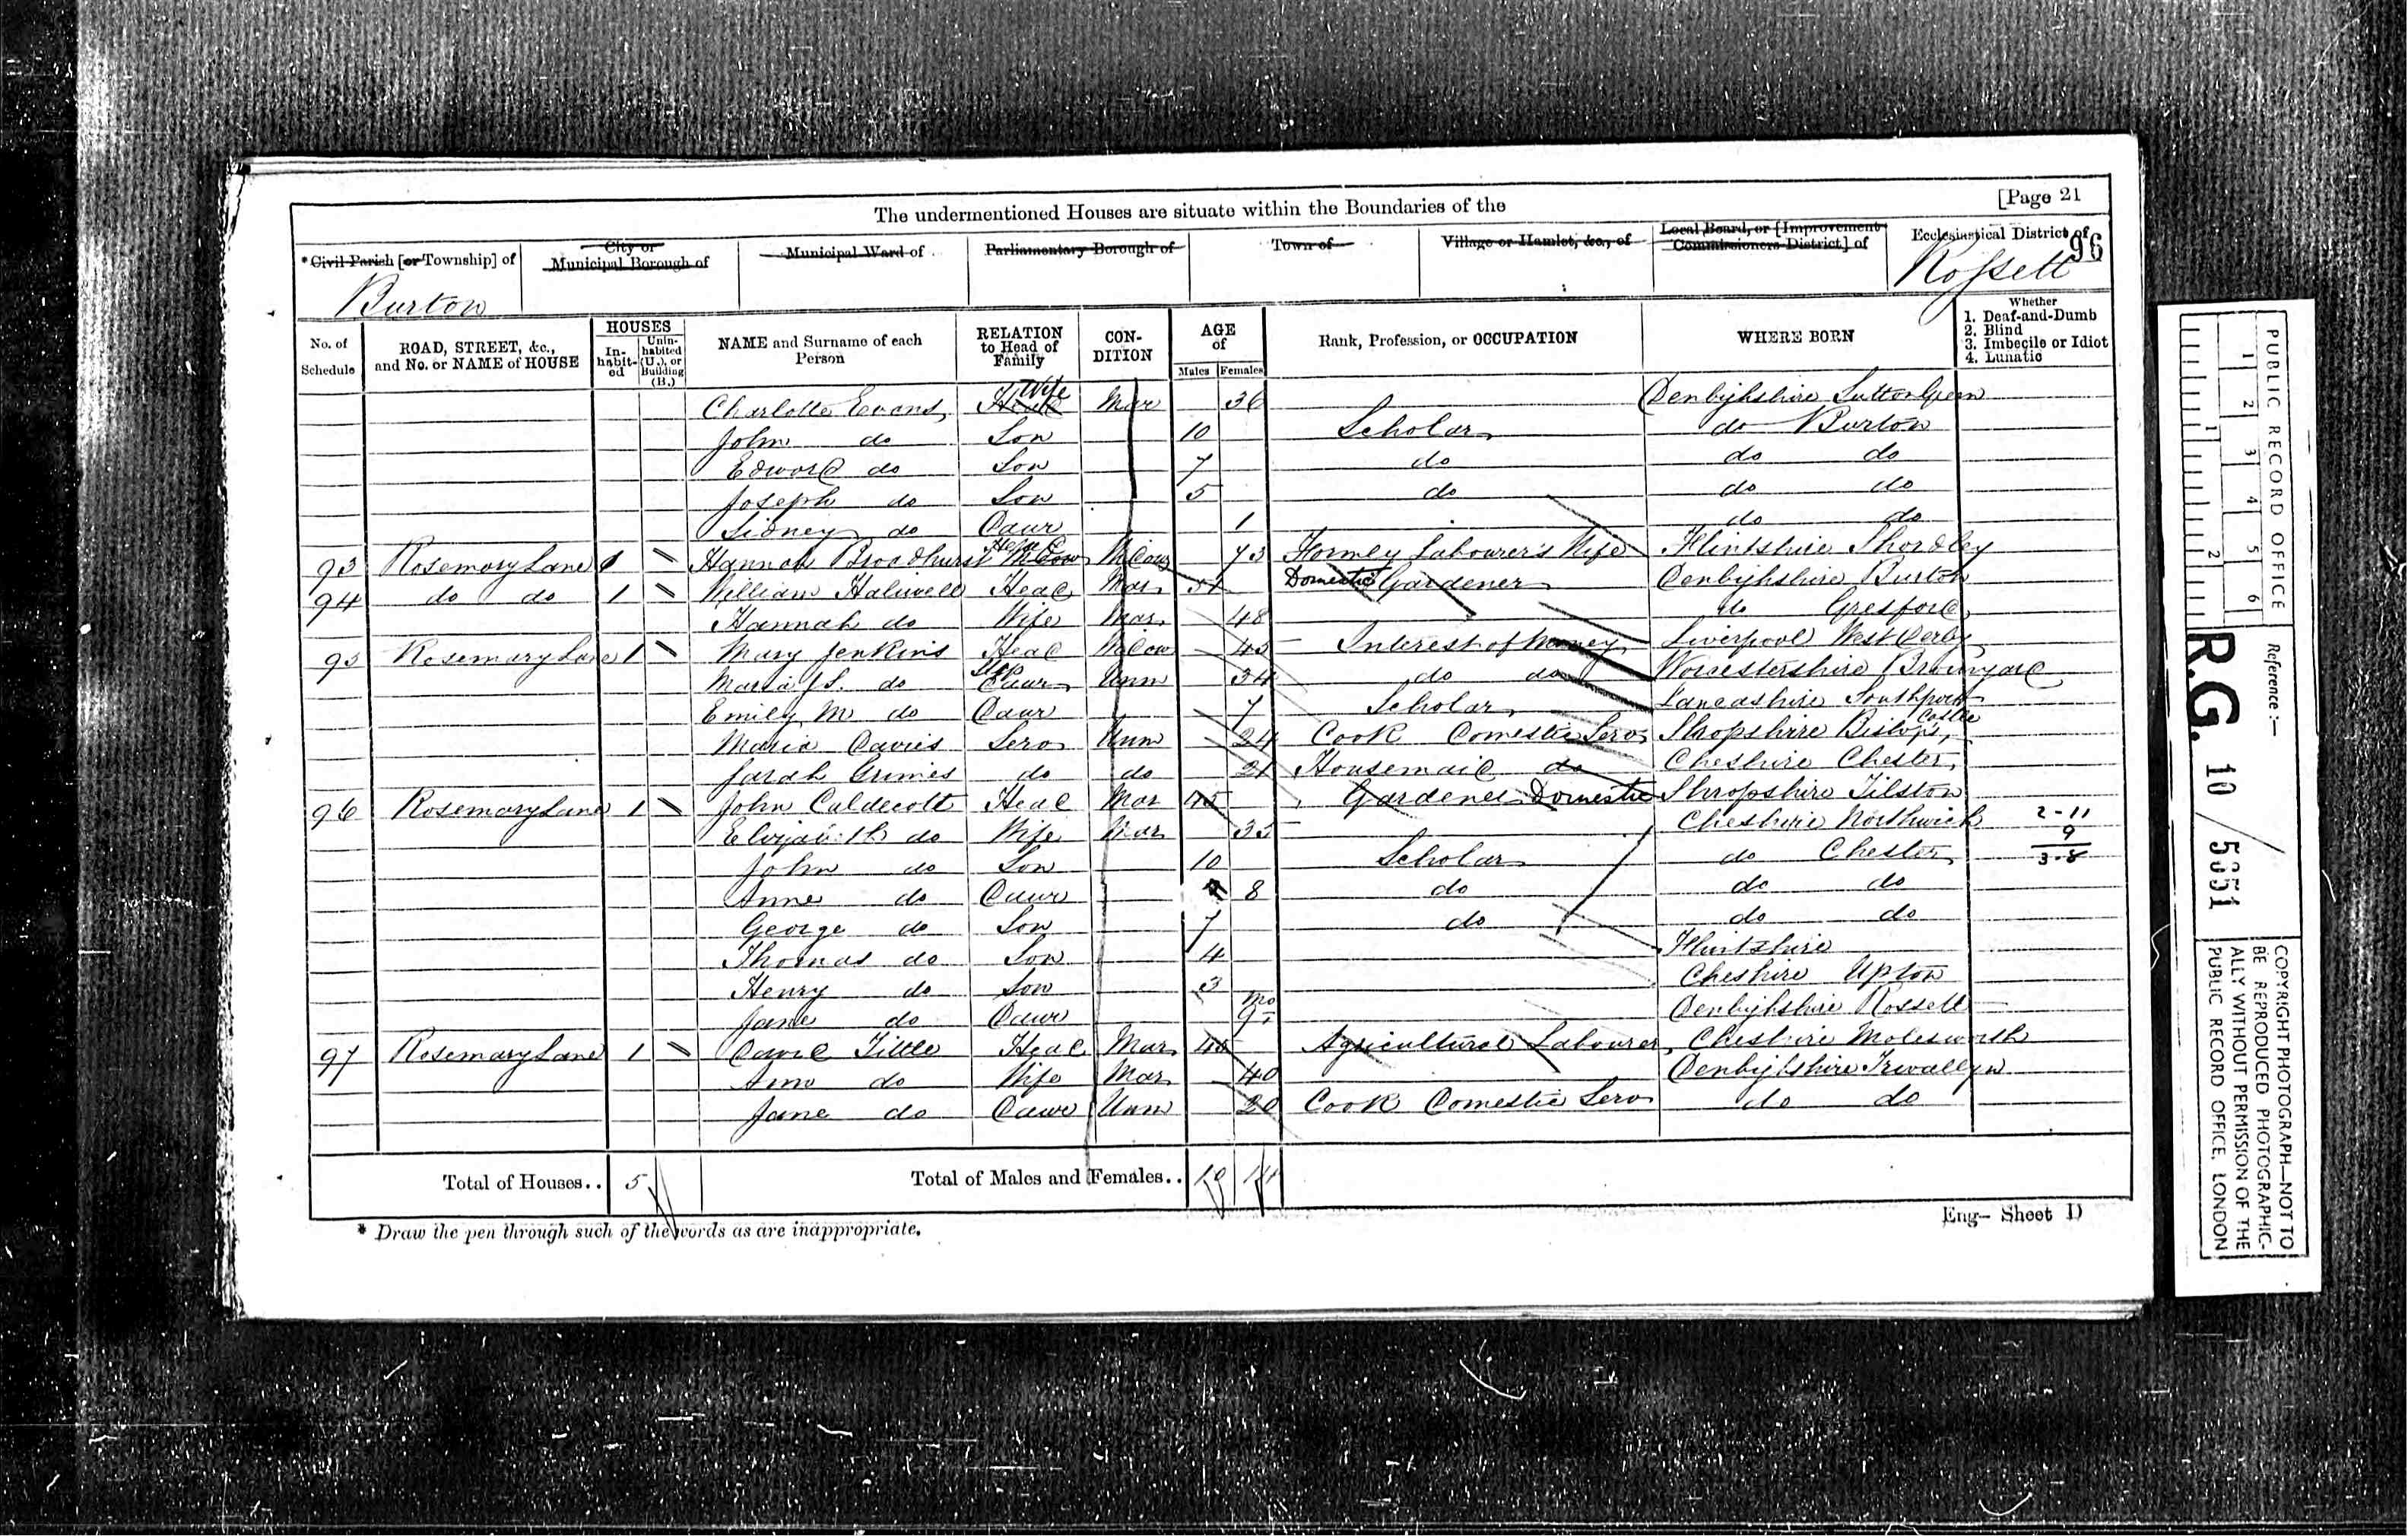 [Page 21
The undermentioned Houses are situate within the Boundaries of the
*Civil Parish [or Township] of
City or Municipal Borough of
Municipal Ward of
Parliamentary Borough of
Town of
Village or Hamlet, &c., of
Local Board, or [Improvement Commissioners District] of
Ecclesiastical District of
96
Burton
Rossett
No. of Schedule
ROAD, STREET, &c., and No. or NAME of HOUSE
HOUSES
In-habit-ed
Unin-habited (U.), or Building (B.)
NAME and Surname of each Person
RELATION to Head of Family
CON-DITION
AGE of
Males Females
Rank, Profession, or OCCUPATION
WHERE BORN
Whether
1. Deaf-and-Dumb
2. Blind
3. Imbecile or Idiot
4. Lunatic
Charlotte Evans Head Wife Mar 36 Denbighshire Sutton Green
John do Son 10 Scholar do Burton
Edward do Son 7 do do do
Joseph do Son 5 do do do
Sidney do Daur 1 do do
93 Rosemary Lane 1 Hannah Broadhurst Head Widow Widow 73 Former Labourer's Wife Flintshire Shordley
94 do do 1 William Haliwell Head Mar 51 Domestic Gardener Denbighshire Burton
Hannah do Wife Mar 48 do Gresford
95 Rosemary Lane 1 Mary Jenkins Head Widow 45 Interest of money Liverpool West Derby
Maria do Daur Unm 34 do do Worcestershire Bromyard
Emily M do Daur 7 Scholar Lancashire Southport
Maria Davies Serv Unm 24 Cook Domestic Serv Shropshire Bishop's Castle
Sarah Grimes do do 21 Housemaid do Cheshire Chester
96 Rosemary Lane 1 John Caldecott Head Mar 45 Gardener Domestic Shropshire Tilston
Elizabeth do Wife Mar 35 Cheshire Northwich 2-11
9
John do Son 10 Scholar do Chester 3-8
Anne do Daur 8 do do do
George do Son 7 do do do
Thomas do Son 4 Flintshire
Henry do Son 3 Cheshire Upton
Jane do Daur 9 mo Denbighshire Rossett
97 Rosemary Lane 1 David Tittle Head Mar Agricultural Labourer Cheshire Molesworth
Ann do Wife Mar 40 Denbighshire Trevallyn
Jane do Daur Unm 20 Cook Domestic Serv do do
Total of Houses.. 5
Total of Males and Females.. 10 14
* Draw the pen through such of the words as are inappropriate.
Eng- Sheet D
PUBLIC RECORD OFFICE
1 2 3 4 5 6
1 2
Reference:-
R.G. 10 / 5651
COPYRIGHT PHOTOGRAPH—NOT TO
BE REPRODUCED PHOTOGRAPHIC-
ALLY WITHOUT PERMISSION OF THE
PUBLIC RECORD OFFICE, LONDON